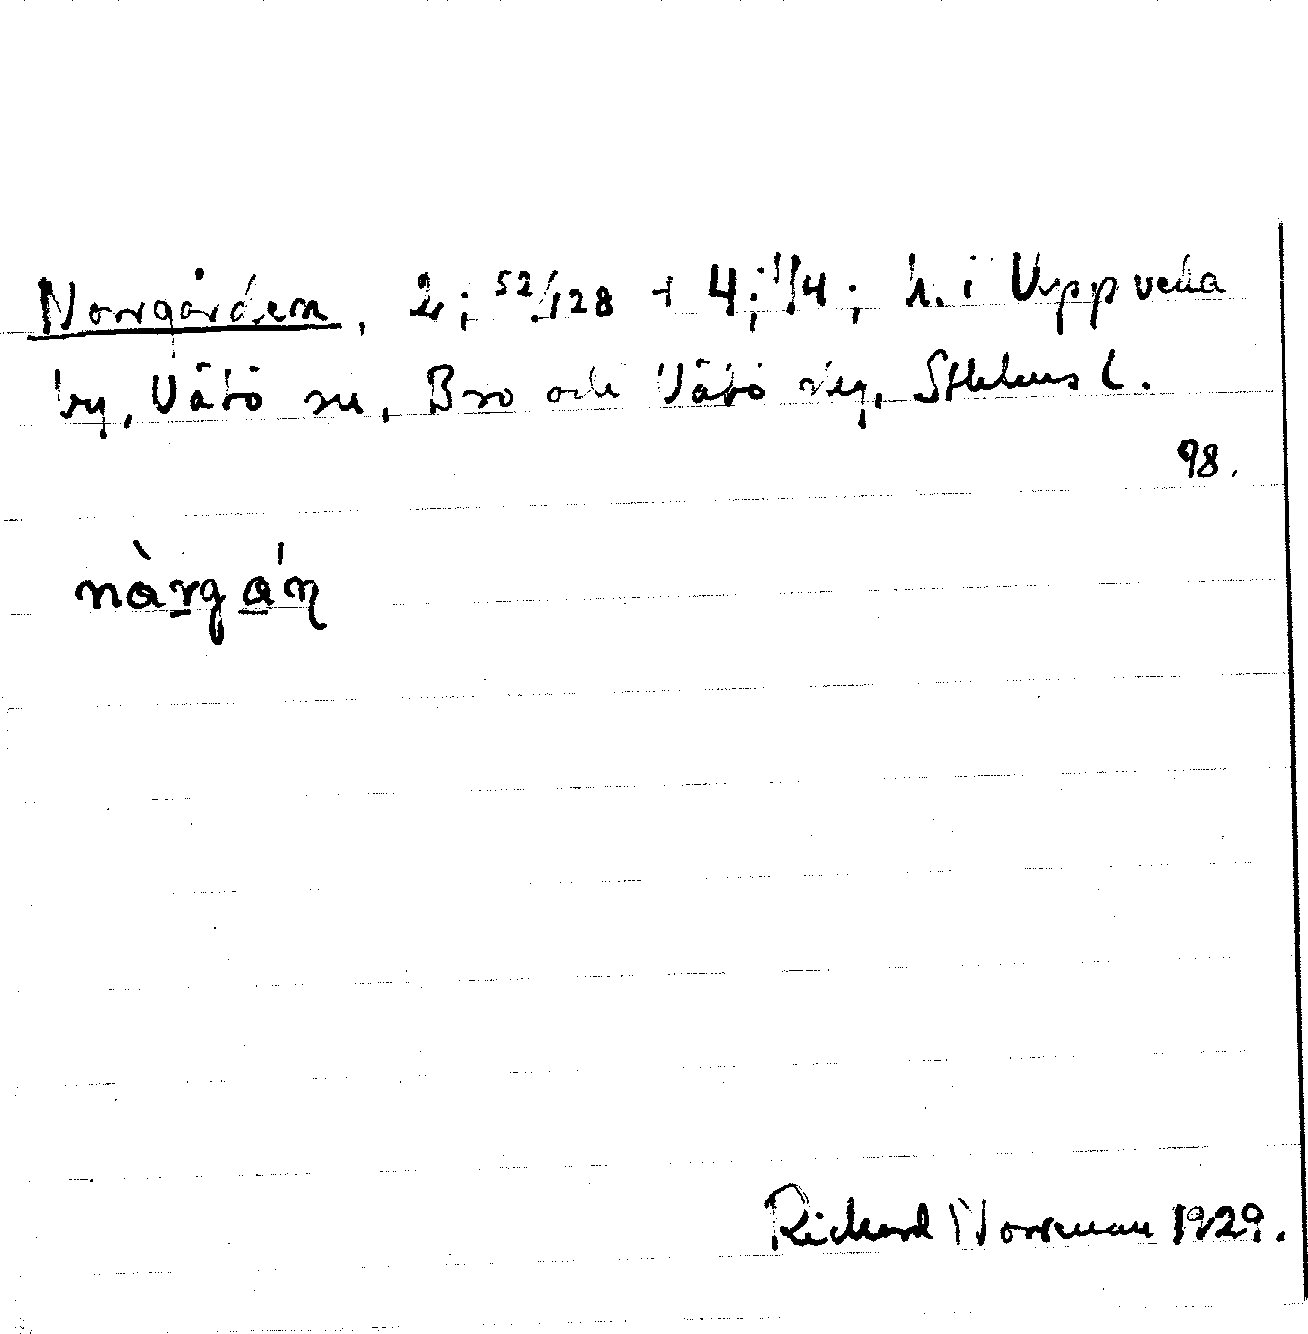 Norrgården, 2; 52/128 + 4; 1/4; h. i Uppveda
by, Vätö sn, Bro och Vätö skg, Sthlms l.
98.
nàrgán
Richard Norrman 1929.